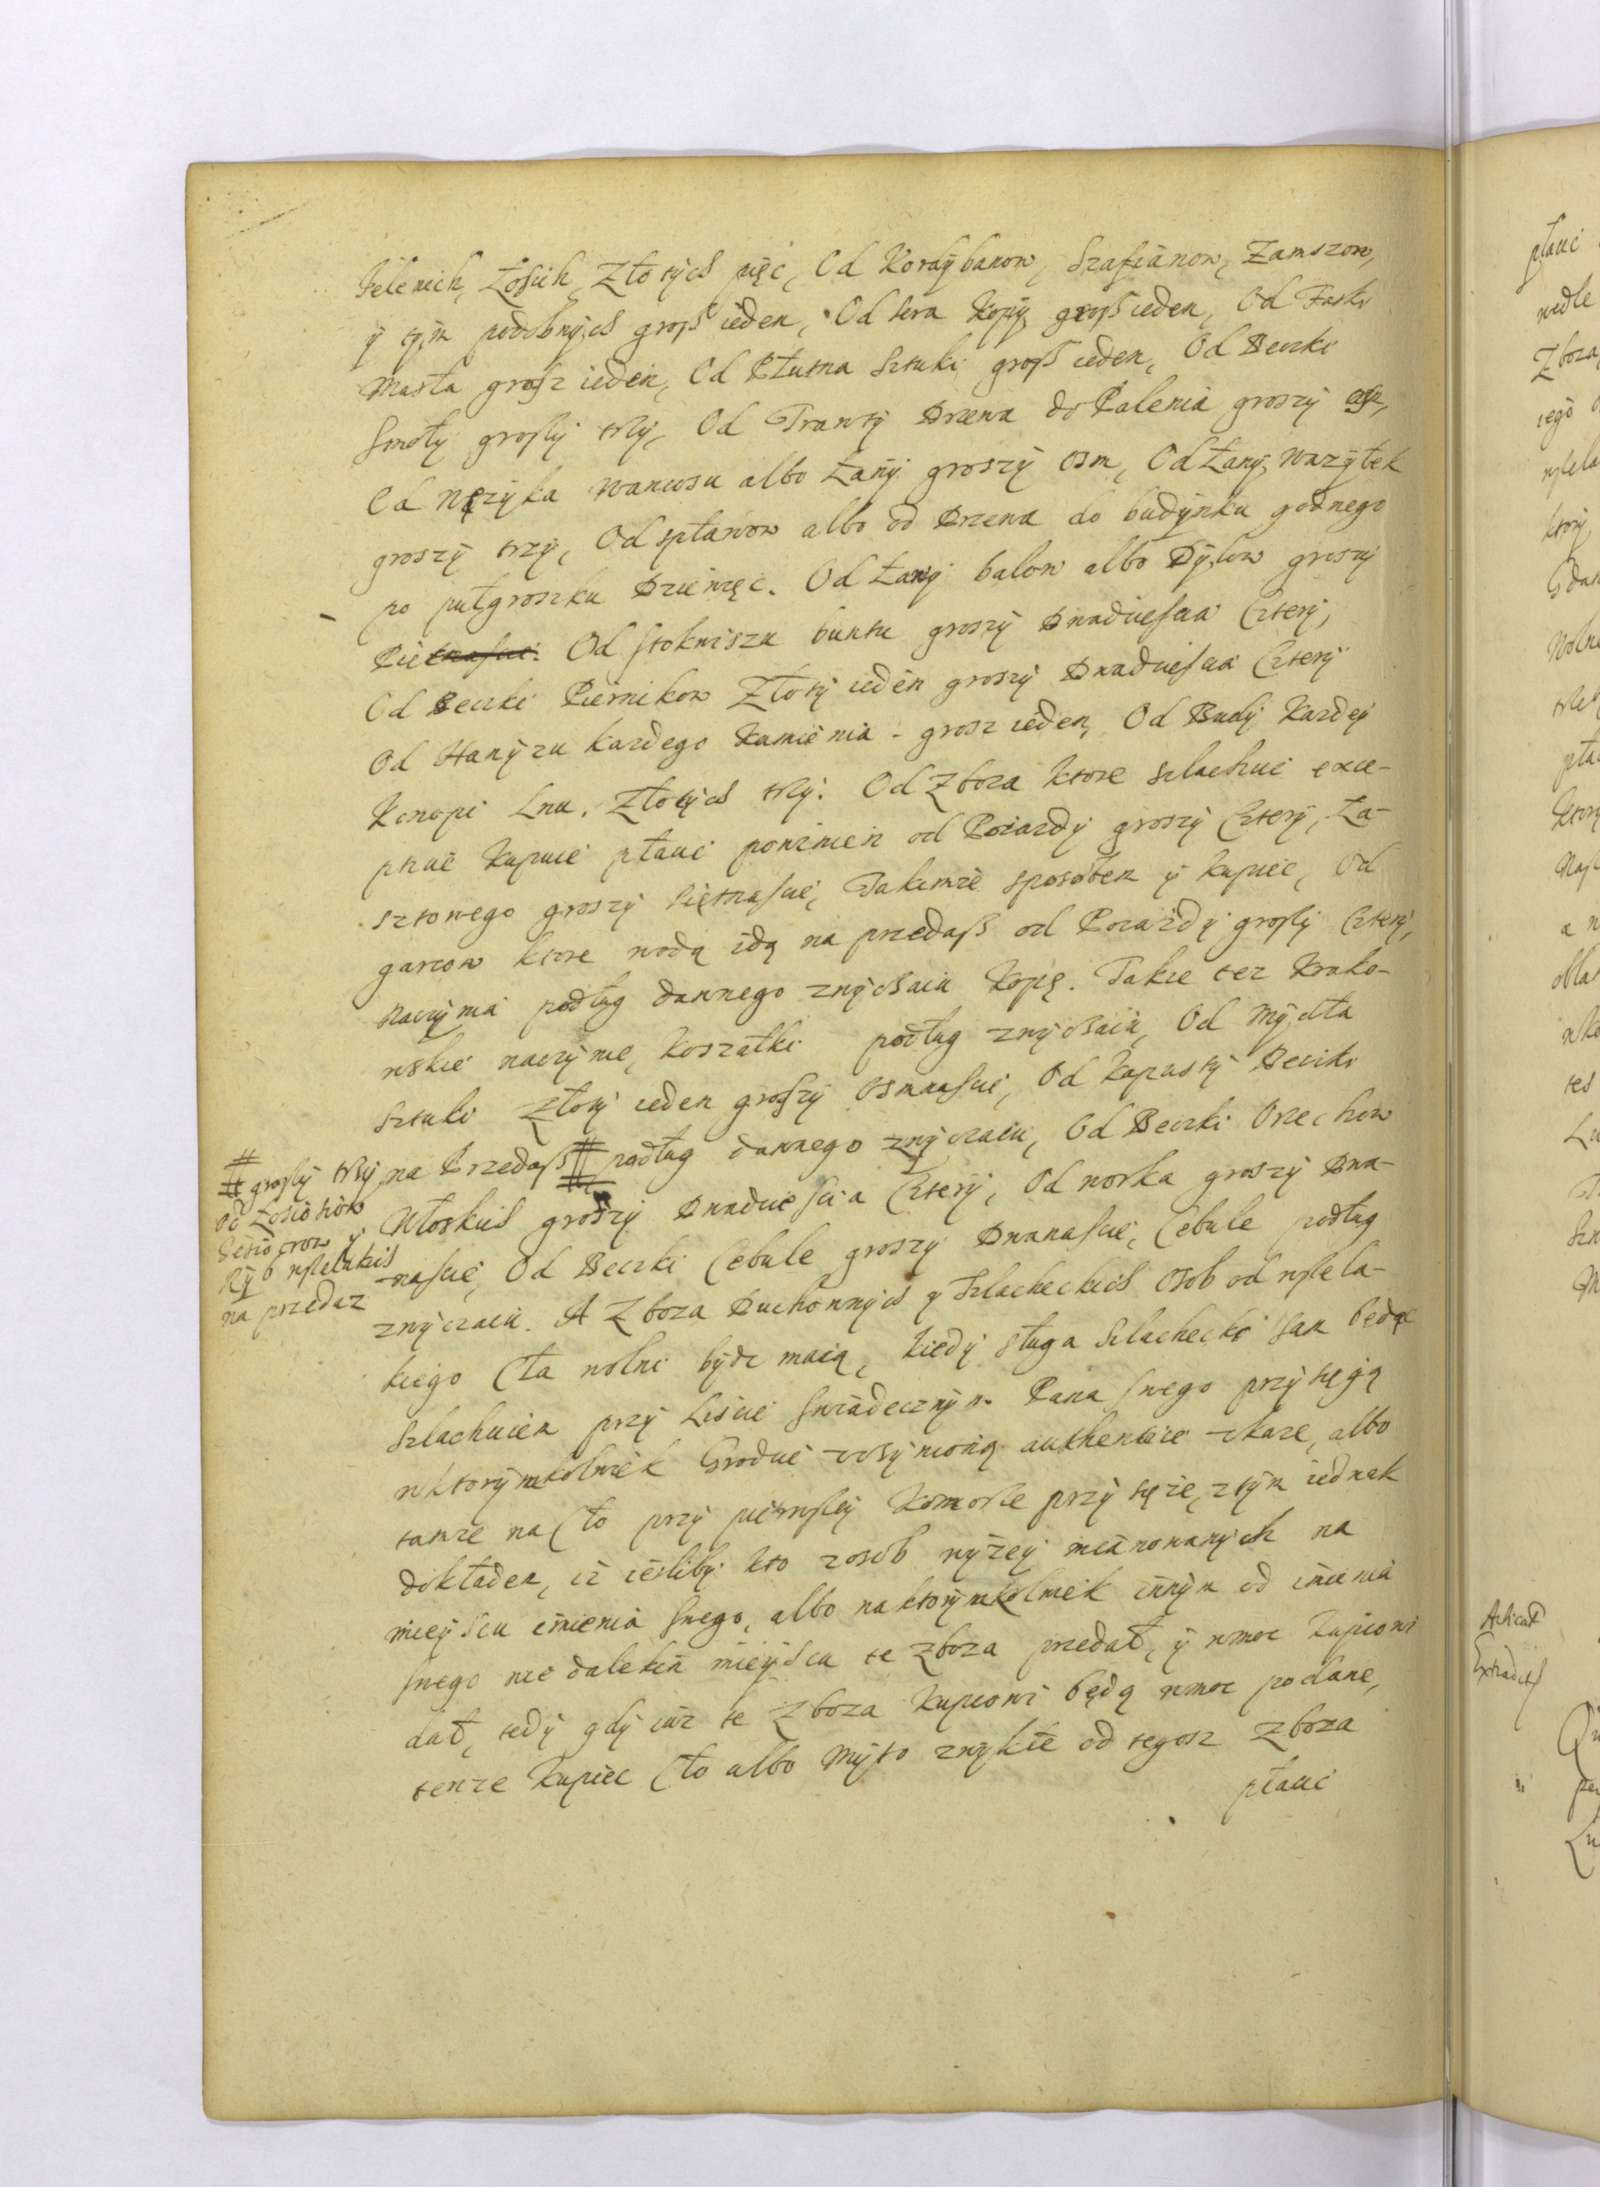 Jelenich, Łosich, Złotych pięć, Od Kordybanow, Szafianow, Zamszow,
y tym podobnych grosz ieden, Od sera kopy grosz ieden, Od Faski
Masła grosz ieden, Od Płutna sztuki grosz ieden, Od Beczki
smoły groszy trzy, Od Trawty Drzewa do Palenia groszy osm,
Od węzyka wanczosu albo Łany groszy osm, Od Łany wazytek
groszy trzy, Od spławow albo od Drzewa do budynku godnego
po pułgroszku Dziewięc. Od Ławy balow albo Dylow groszy
Piętnascie. Od stokwiszu buntu groszy Dwadziescia Cztery,
Od Beczki Piernikow Złoty ieden groszy Dwadziescia Cztery
Od Hanyzu kazdego Kamienia - grosz ieden, Od Budy Kazdey
Konopi Lnu, Złotych trzy. Od Zboza ktore szlachcic exce-
ptuie kupuie płacic powinien od Poiazdy groszy Cztery, Ła-
sztowego groszy Piętnascie, Takimze sposobem y kupiec, Od
garcow ktore wodą idą na przedasz od Poiazdy groszy Cztery,
naczynia podług dawnego zwyczaiu Kopę. Takze tez Krako-
wskie naczynie, koszałki podług zwyczaiu, Od Mydła
sztuki Złoty ieden groszy Osmnascie, Od Kapusty Beczki
na Przedasz # podług dawnego zwyczaiu, Od Beczki Orzechow
Włoskich groszy Dwadziescia Cztery, Od worka groszy Dwa-
nascie, Od Beczki Cebule groszy Dwanascie, Cebule podług
zwyczaiu. A Zboza Duchownych y Szlacheckich Osob od wszela-
kiego Cła wolne bydz maią, kiedy sługa Szlachecki sam będąc
szlachcicem przy Liscie swiadecznym Pana swego przysięgą
wktorymkolwiek Grodzie uczynioną authentice okaze, albo
tamze na Cło przy pierwszey Komorze przysięze, ztym iednak
dokładem, iz iesliby kto zosob wyzey mianowanych na
mieyscu imienia swego, albo naktorymkolwiek innym od imienia
swego niedalekim mieyscu te zboza przedał, y wmoc kupcowi
dał, tedy gdy iuz te Zboza Kupcowi będą wmoc podane,
tenze Kupiec Cło albo Myto zwykłe od tegosz Zboza
płacic
# groszy trzy
od Łosiosiow
Jesiotrow y
Ryb wszelakich
na przedaz
płacic
wedle
Zboza
iego
wszela
ktory
Gdan
Wolne
trze
pła
ktory
Nasz
a n
obla
wko
tes
Lu
Acticat
Extradit